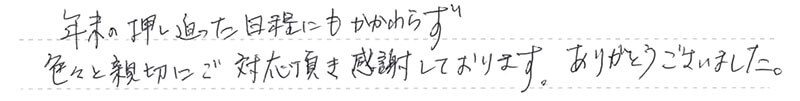 年末の押し迫った日程にもかかわらず
色々と親切にご対応頂き感謝しております。ありがとうございました。